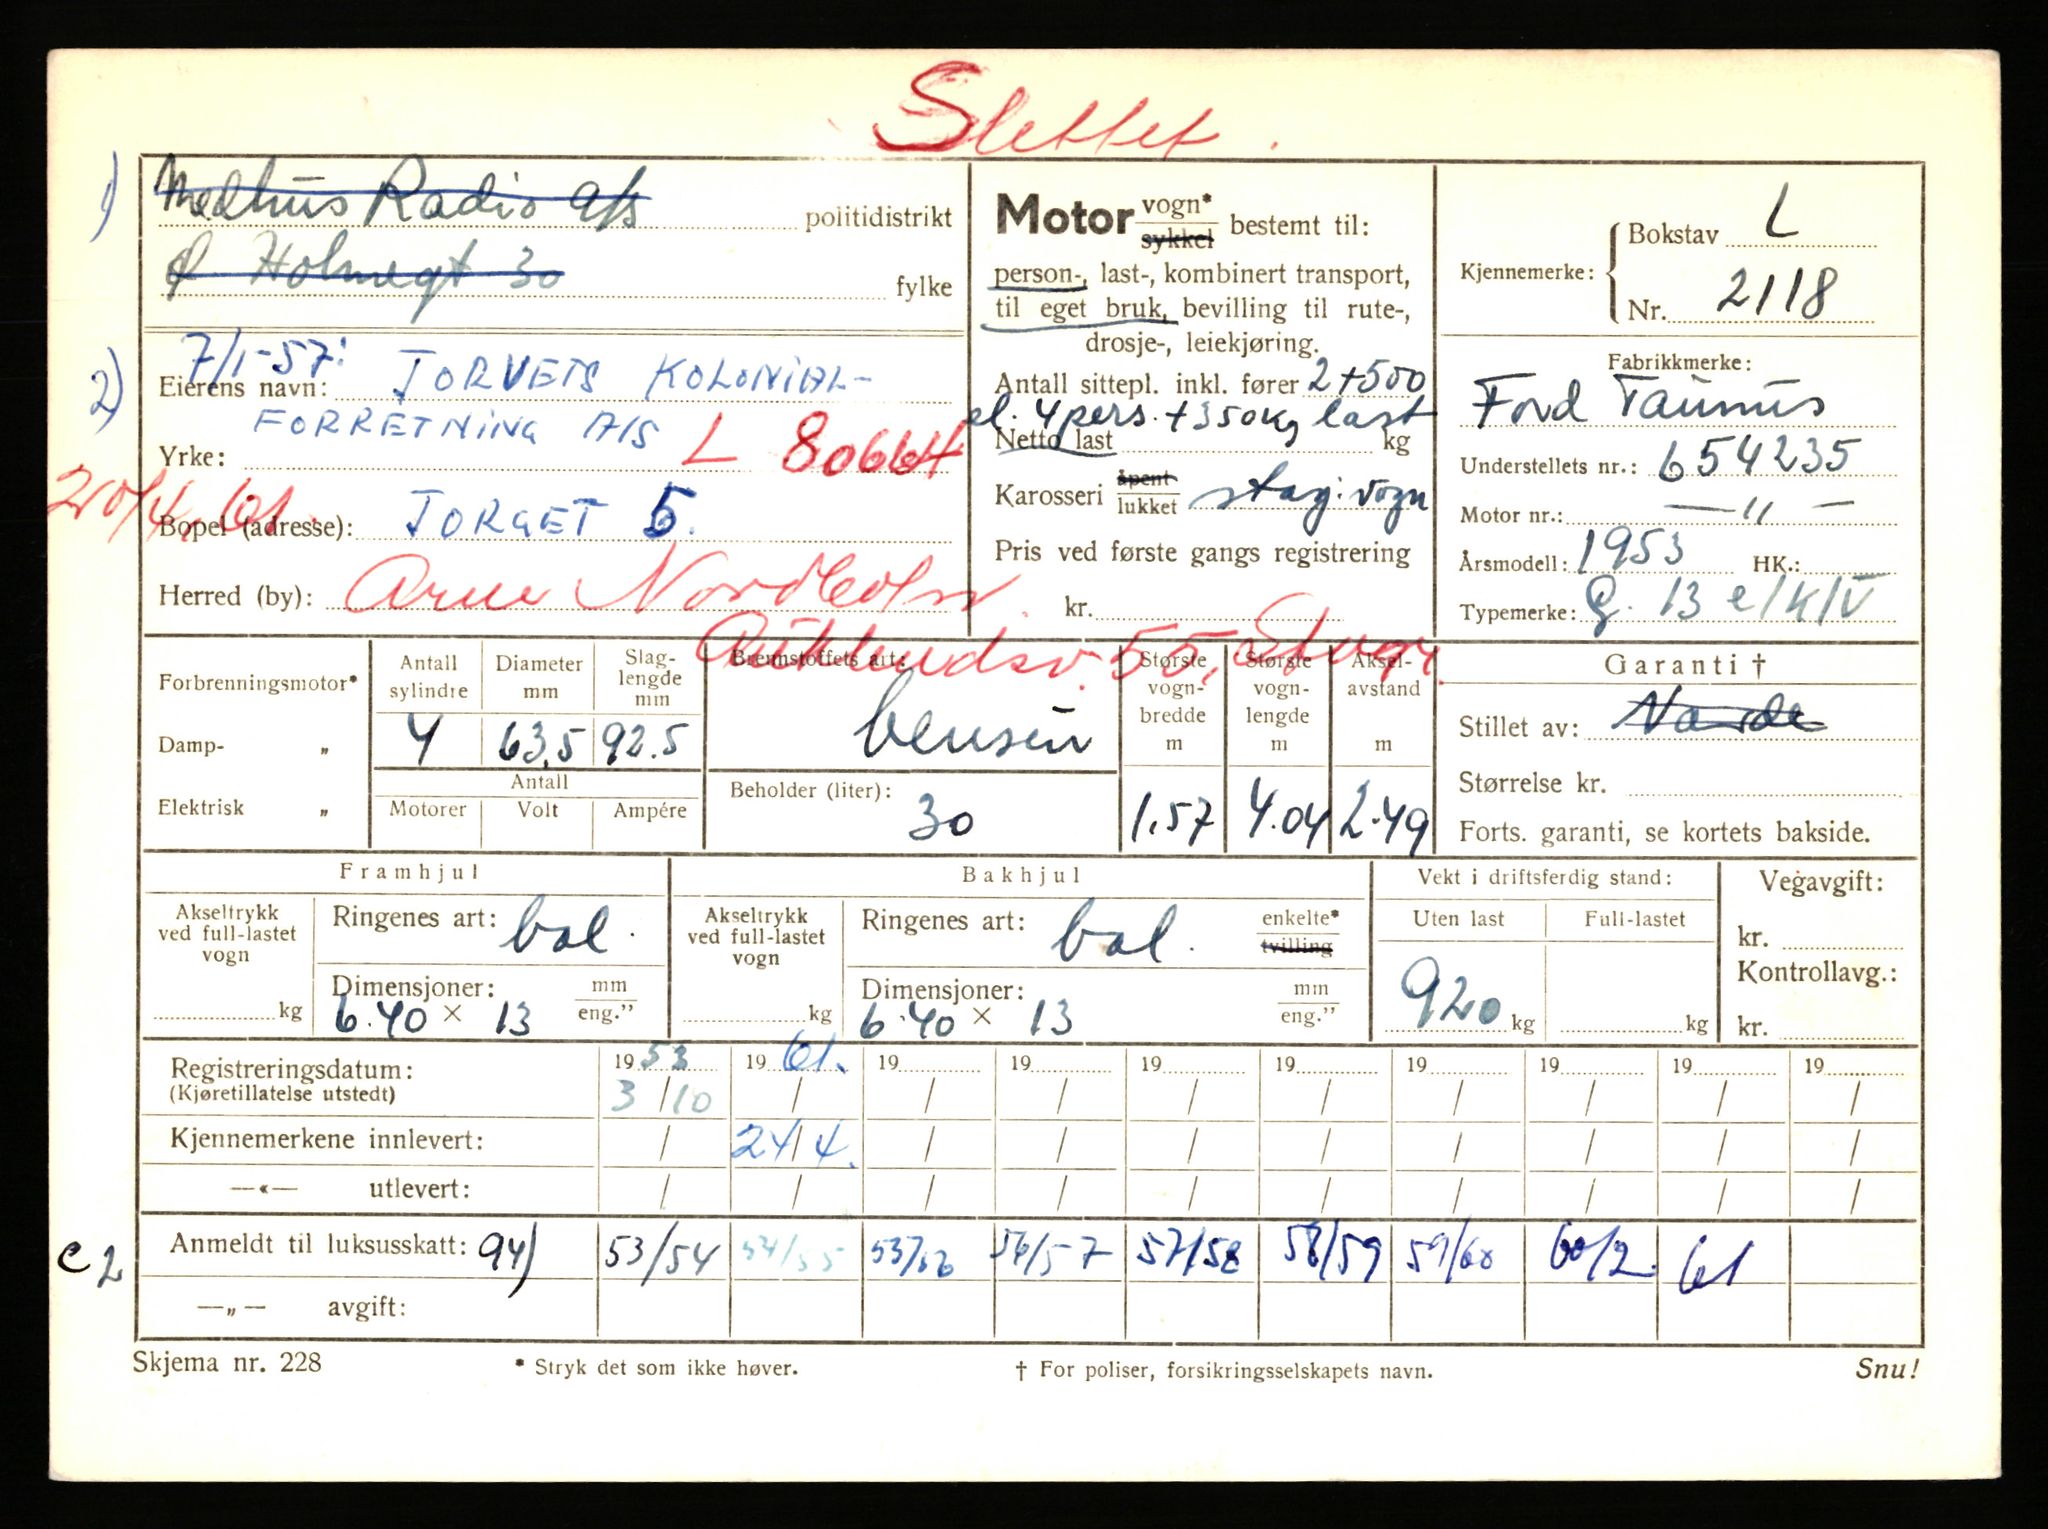 Slettet.
1) Medhus Radio a/s politidistrikt
Ø Holmegt 30 fylke
7/1-57:
2) Eierens navn: TORVETS KOLONIAL-
FORRETNING A/S
Yrke: L 80664
20/4. 61.
Bopel (adresse): TORGET 5.
Herred (by): Arne Nordholm.
55, Stvgr.
Motor vogn* sykkel bestemt til:
person-, last-, kombinert transport,
til eget bruk, bevilling til rute-,
drosje-, leiekjøring.
Antall sittepl. inkl. fører 2+500
el. 4 pers. + 350 kg last
Netto last kg
Karosseri åpent lukket stasj. vogn
Pris ved første gangs registrering
kr.
Kjennemerke: Bokstav L
Nr. 2118
Fabrikkmerke:
Ford Taunus
Understellets nr.: 654235
Motor nr.: — " —
Årsmodell: 1953 HK.:
Typemerke: G. 13 e/K/V
Forbrenningsmotor*
Damp- „
Elektrisk „
Antall sylindre
4
Diameter mm
63,5
Slag-lengde mm
92.5
Antall
Motorer Volt Ampére
Brennstoffets art:
bensin
Beholder (liter):
30
Største vogn-bredde m
1.57
Største vogn-lengde m
4.04
Aksel-avstand m
2.49
Garanti †
Stillet av: Norde
Størrelse kr.
Forts. garanti, se kortets bakside.
Framhjul
Akseltrykk ved full-lastet vogn
kg
Ringenes art: bal.
Dimensjoner: mm eng."
6.40 × 13
Bakhjul
Akseltrykk ved full-lastet vogn
kg
Ringenes art: bal. enkelte* tvilling
Dimensjoner: mm eng."
6.40 × 13
Vekt i driftsferdig stand:
Uten last Full-lastet
920 kg kg
Vegavgift:
kr.
Kontrollavg.:
kr.
Registreringsdatum: 1953 1961. 19 19 19 19 19 19 19 19
(Kjøretillatelse utstedt) 3/10 / / / / / / / / /
Kjennemerkene innlevert: / 24/4. / / / / / / / /
—«— utlevert: / / / / / / / / / /
C2 Anmeldt til luksusskatt: 94) 53/54 54/55 55/56 56/57 57/58 58/59 59/60 60/2. 61
—„— avgift:
Skjema nr. 228 * Stryk det som ikke høver. † For poliser, forsikringsselskapets navn. Snu!